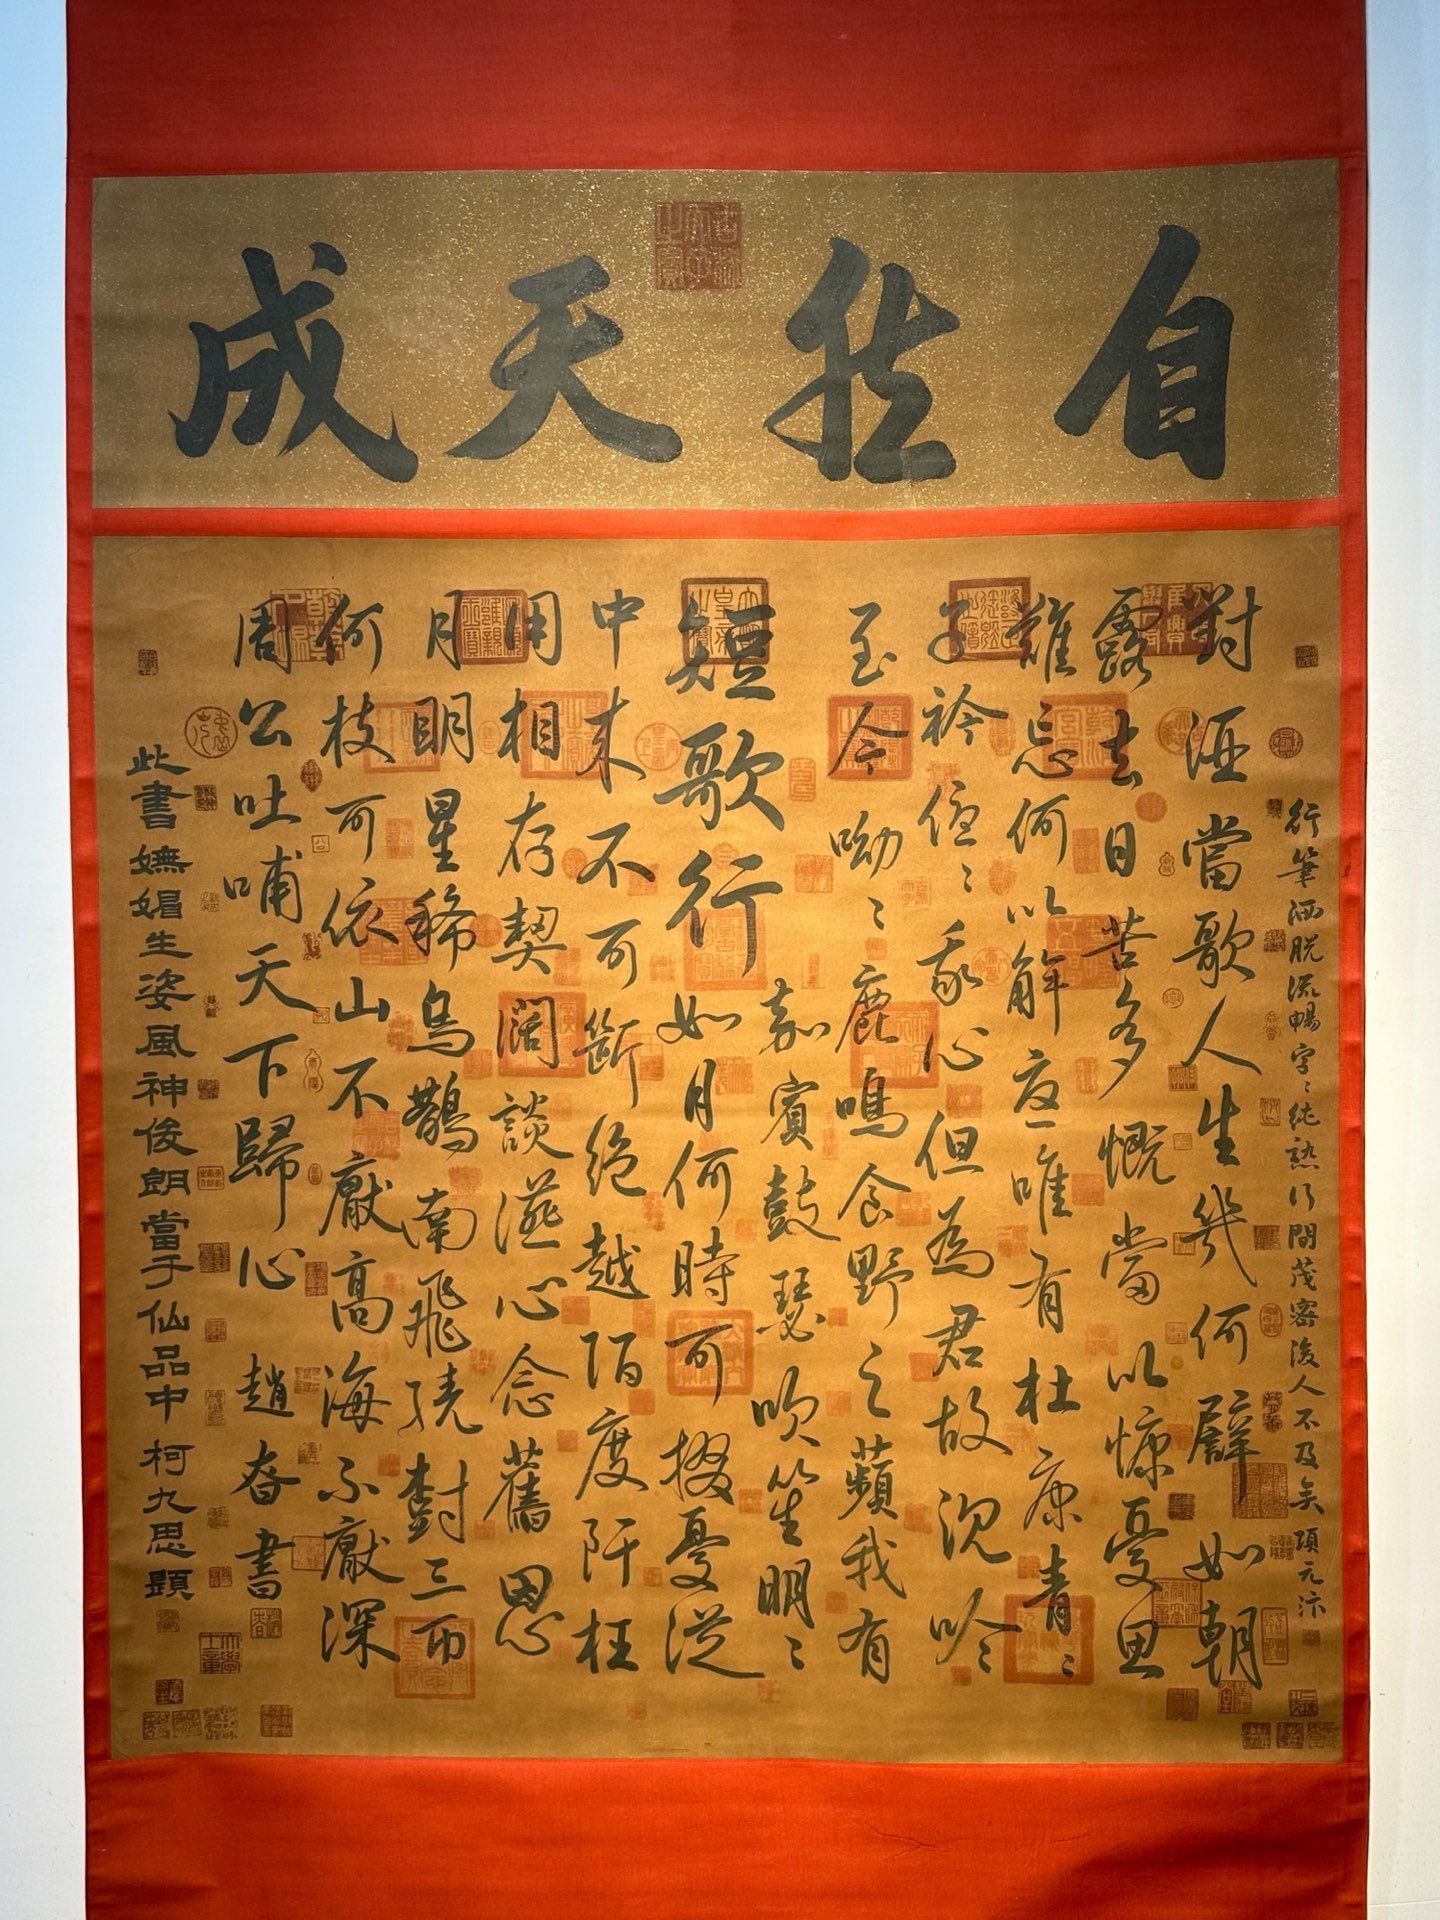 自然天成
行筆洒脫流暢字〻純熟行間茂密後人不及矣項元汴
對酒當歌人生幾何譬如朝
露去日苦多慨當以慷憂思
難忘何以解憂唯有杜康青〻
子衿悠〻我心但為君故沉吟
至今呦〻鹿鳴食野之蘋我有
短歌行
嘉賓鼓瑟吹笙明〻
如月何時可掇憂從
中來不可斷絕越陌度阡枉
用相存契闊談讌心念舊恩
月明星稀烏鵲南飛繞樹三匝
何枝可依山不厭高海不厭深
周公吐哺天下歸心 趙昚書
此書嫵媚生姿風神俊朗當于仙品中柯九思題